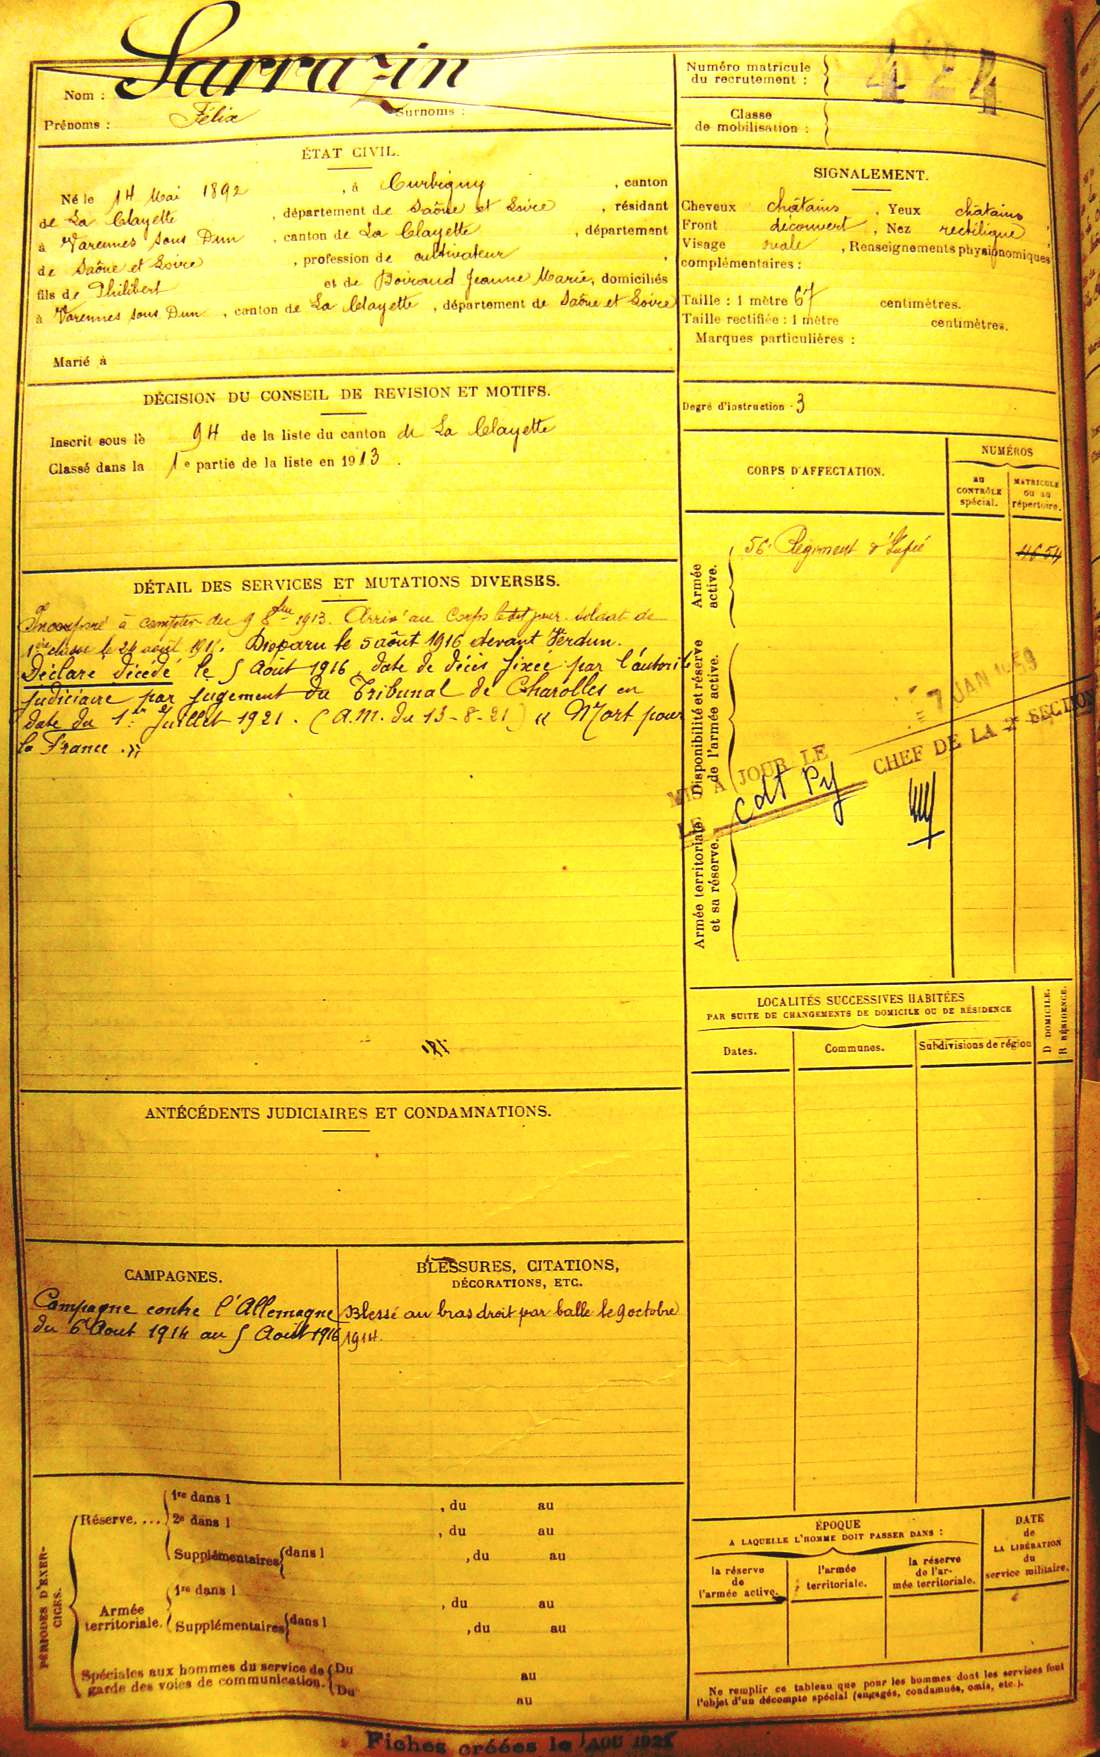 Nom : Sarrazin
Prénoms : Félix Surnoms :
Numéro matricule
du recrutement : 424
Classe
de mobilisation :
ÉTAT CIVIL.
Né le 14 Mai 1892 , à Curbigny , canton
de La Clayette , département de Saône et Loire , résidant
à Varennes sous Dun , canton de La Clayette , département
de Saône et Loire , profession de cultivateur ,
fils de Philibert et de Boiraud Jeanne Marie, domiciliés
à Varennes sous Dun , canton de La Clayette , département de Saône et Loire
Marié à
SIGNALEMENT.
Cheveux châtains , Yeux châtains
Front découvert , Nez rectiligne
Visage ovale , Renseignements physionomiques
complémentaires :
Taille : 1 mètre 67 centimètres.
Taille rectifiée : 1 mètre centimètres.
Marques particulières :
Degré d'instruction 3
DÉCISION DU CONSEIL DE REVISION ET MOTIFS.
Inscrit sous le 94 de la liste du canton de La Clayette
Classé dans la 1e partie de la liste en 1913.
CORPS D'AFFECTATION.
NUMÉROS
AU
CONTRÔLE
spécial.
MATRICULE
ou au
répertoire.
Armée
active.
56e Régiment d'Infie 4654
Disponibilité et réserve
de l'armée active.
Armée territoriale
et sa réserve.
MIS A JOUR LE = 7 JAN 1959
LE cdt Py CHEF DE LA 2e SECTION
DÉTAIL DES SERVICES ET MUTATIONS DIVERSES.
Incorporé à compter du 9 8bre 1913. Arrivé au Corps ledit jour. soldat de
1ère classe le 24 août Disparu le 5 août 1916 devant Verdun.
Déclaré décédé le 5 Août 1916, date de décès fixée par l'autorité
judiciaire par jugement du Tribunal de Charolles en
date du 1er Juillet 1921. (A.M. du 13-8-21) « Mort pour
la France. »
181
LOCALITÉS SUCCESSIVES HABITÉES
PAR SUITE DE CHANGEMENTS DE DOMICILE OU DE RÉSIDENCE
Dates.
Communes.
Subdivisions de région
D DOMICILE.
R RÉSIDENCE.
ANTÉCÉDENTS JUDICIAIRES ET CONDAMNATIONS.
CAMPAGNES.
Campagne contre l'Allemagne
du 6 Août 1914 au 5 Août 1916
BLESSURES, CITATIONS,
DÉCORATIONS, ETC.
Blessé au bras droit par balle le 9 octobre
1914.
PÉRIODES D'EXER-
CICES.
Réserve....
1re dans l , du au
2e dans l , du au
Supplémentaires dans l , du au
Armée
territoriale.
1re dans l , du au
Supplémentaires dans l , du au
Spéciales aux hommes du service de
garde des voies de communication.
Du au
Du au
ÉPOQUE
A LAQUELLE L'HOMME DOIT PASSER DANS :
la réserve
de
l'armée active.
l'armée
territoriale.
la réserve
de l'ar-
mée territoriale.
DATE
de
LA LIBÉRATION
du
service militaire.
Ne remplir ce tableau que pour les hommes dont les services font
l'objet d'un décompte spécial (engagés, condamnés, omis, etc.).
Fiches créées le AOU